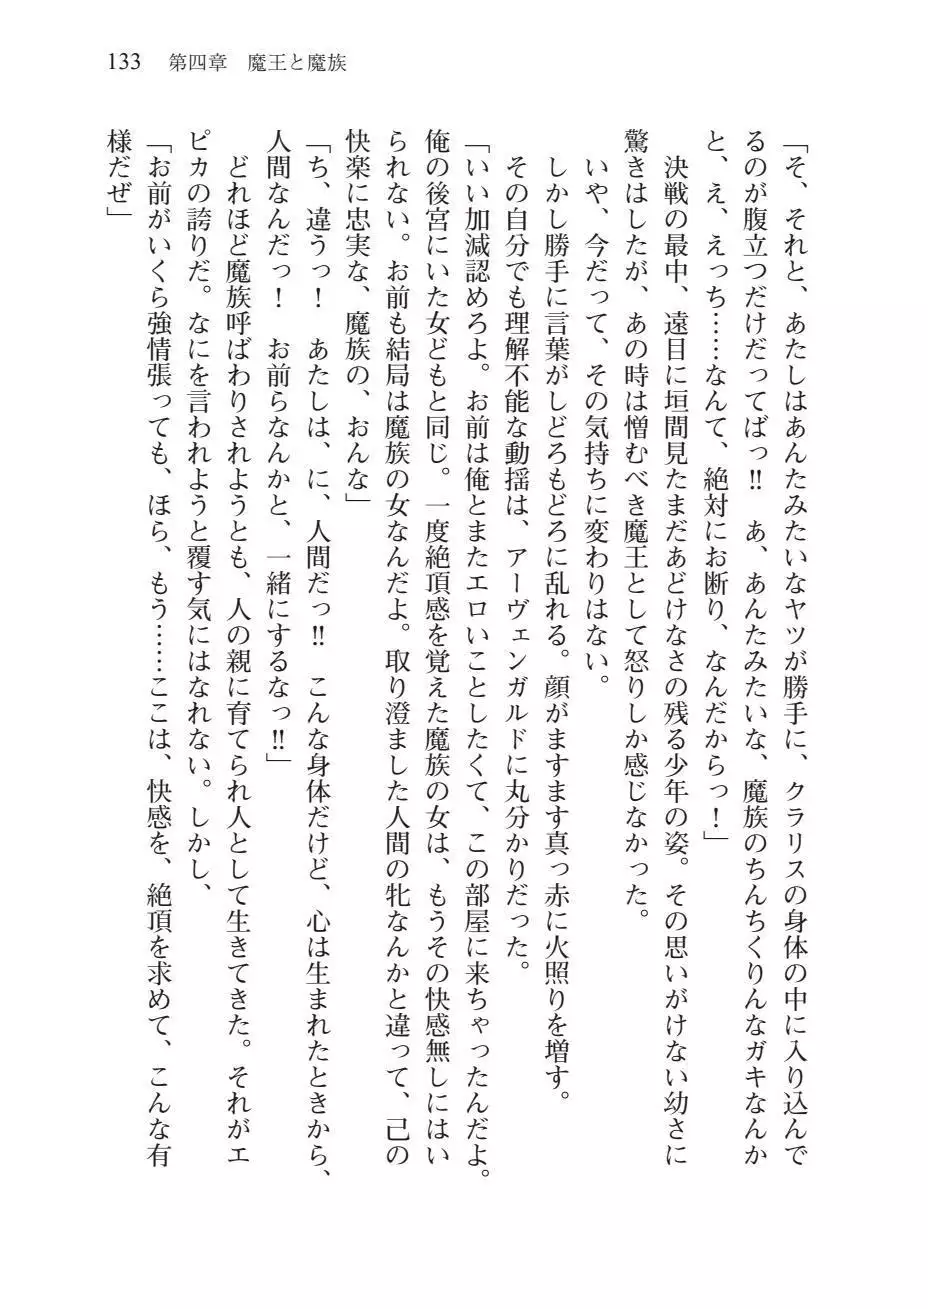 133 第四章 魔王と魔族
「そ、それと、あたしはあんたみたいなヤツが勝手に、クラリスの身体の中に入り込んで
るのが腹立つだけだってばっ!! あ、あんたみたいな、魔族のちんちくりんなガキなんか
と、え、えっち……なんて、絶対にお断り、なんだからっ！」
決戦の最中、遠目に垣間見たまだあどけなさの残る少年の姿。その思いがけない幼さに
驚きはしたが、あの時は憎むべき魔王として怒りしか感じなかった。
いや、今だって、その気持ちに変わりはない。
しかし勝手に言葉がしどろもどろに乱れる。顔がますます真っ赤に火照りを増す。
その自分でも理解不能な動揺は、アーヴェンガルドに丸分かりだった。
「いい加減認めろよ。お前は俺とまたエロいことしたくて、この部屋に来ちゃったんだよ。
俺の後宮にいた女どもと同じ。一度絶頂感を覚えた魔族の女は、もうその快感無しにはい
られない。お前も結局は魔族の女なんだよ。取り澄ました人間の牝なんかと違って、己の
快楽に忠実な、魔族の、おんな」
「ち、違うっ！ あたしは、に、人間だっ!! こんな身体だけど、心は生まれたときから、
人間なんだっ！ お前らなんかと、一緒にするなっ!!」
どれほど魔族呼ばわりされようとも、人の親に育てられ人として生きてきた。それがエ
ピカの誇りだ。なにを言われようと覆す気にはなれない。しかし、
「お前がいくら強情張っても、ほら、もう……ここは、快感を、絶頂を求めて、こんな有
様だぜ」